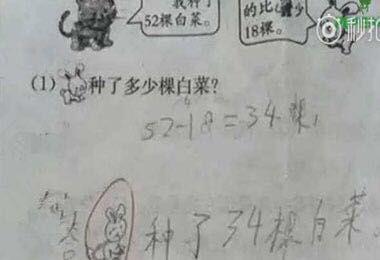 我种了
52棵白菜。
的比
少
18棵。
秒拍
(1) 种了多少棵白菜?
52-18=34棵,
答:
种了34棵白菜。